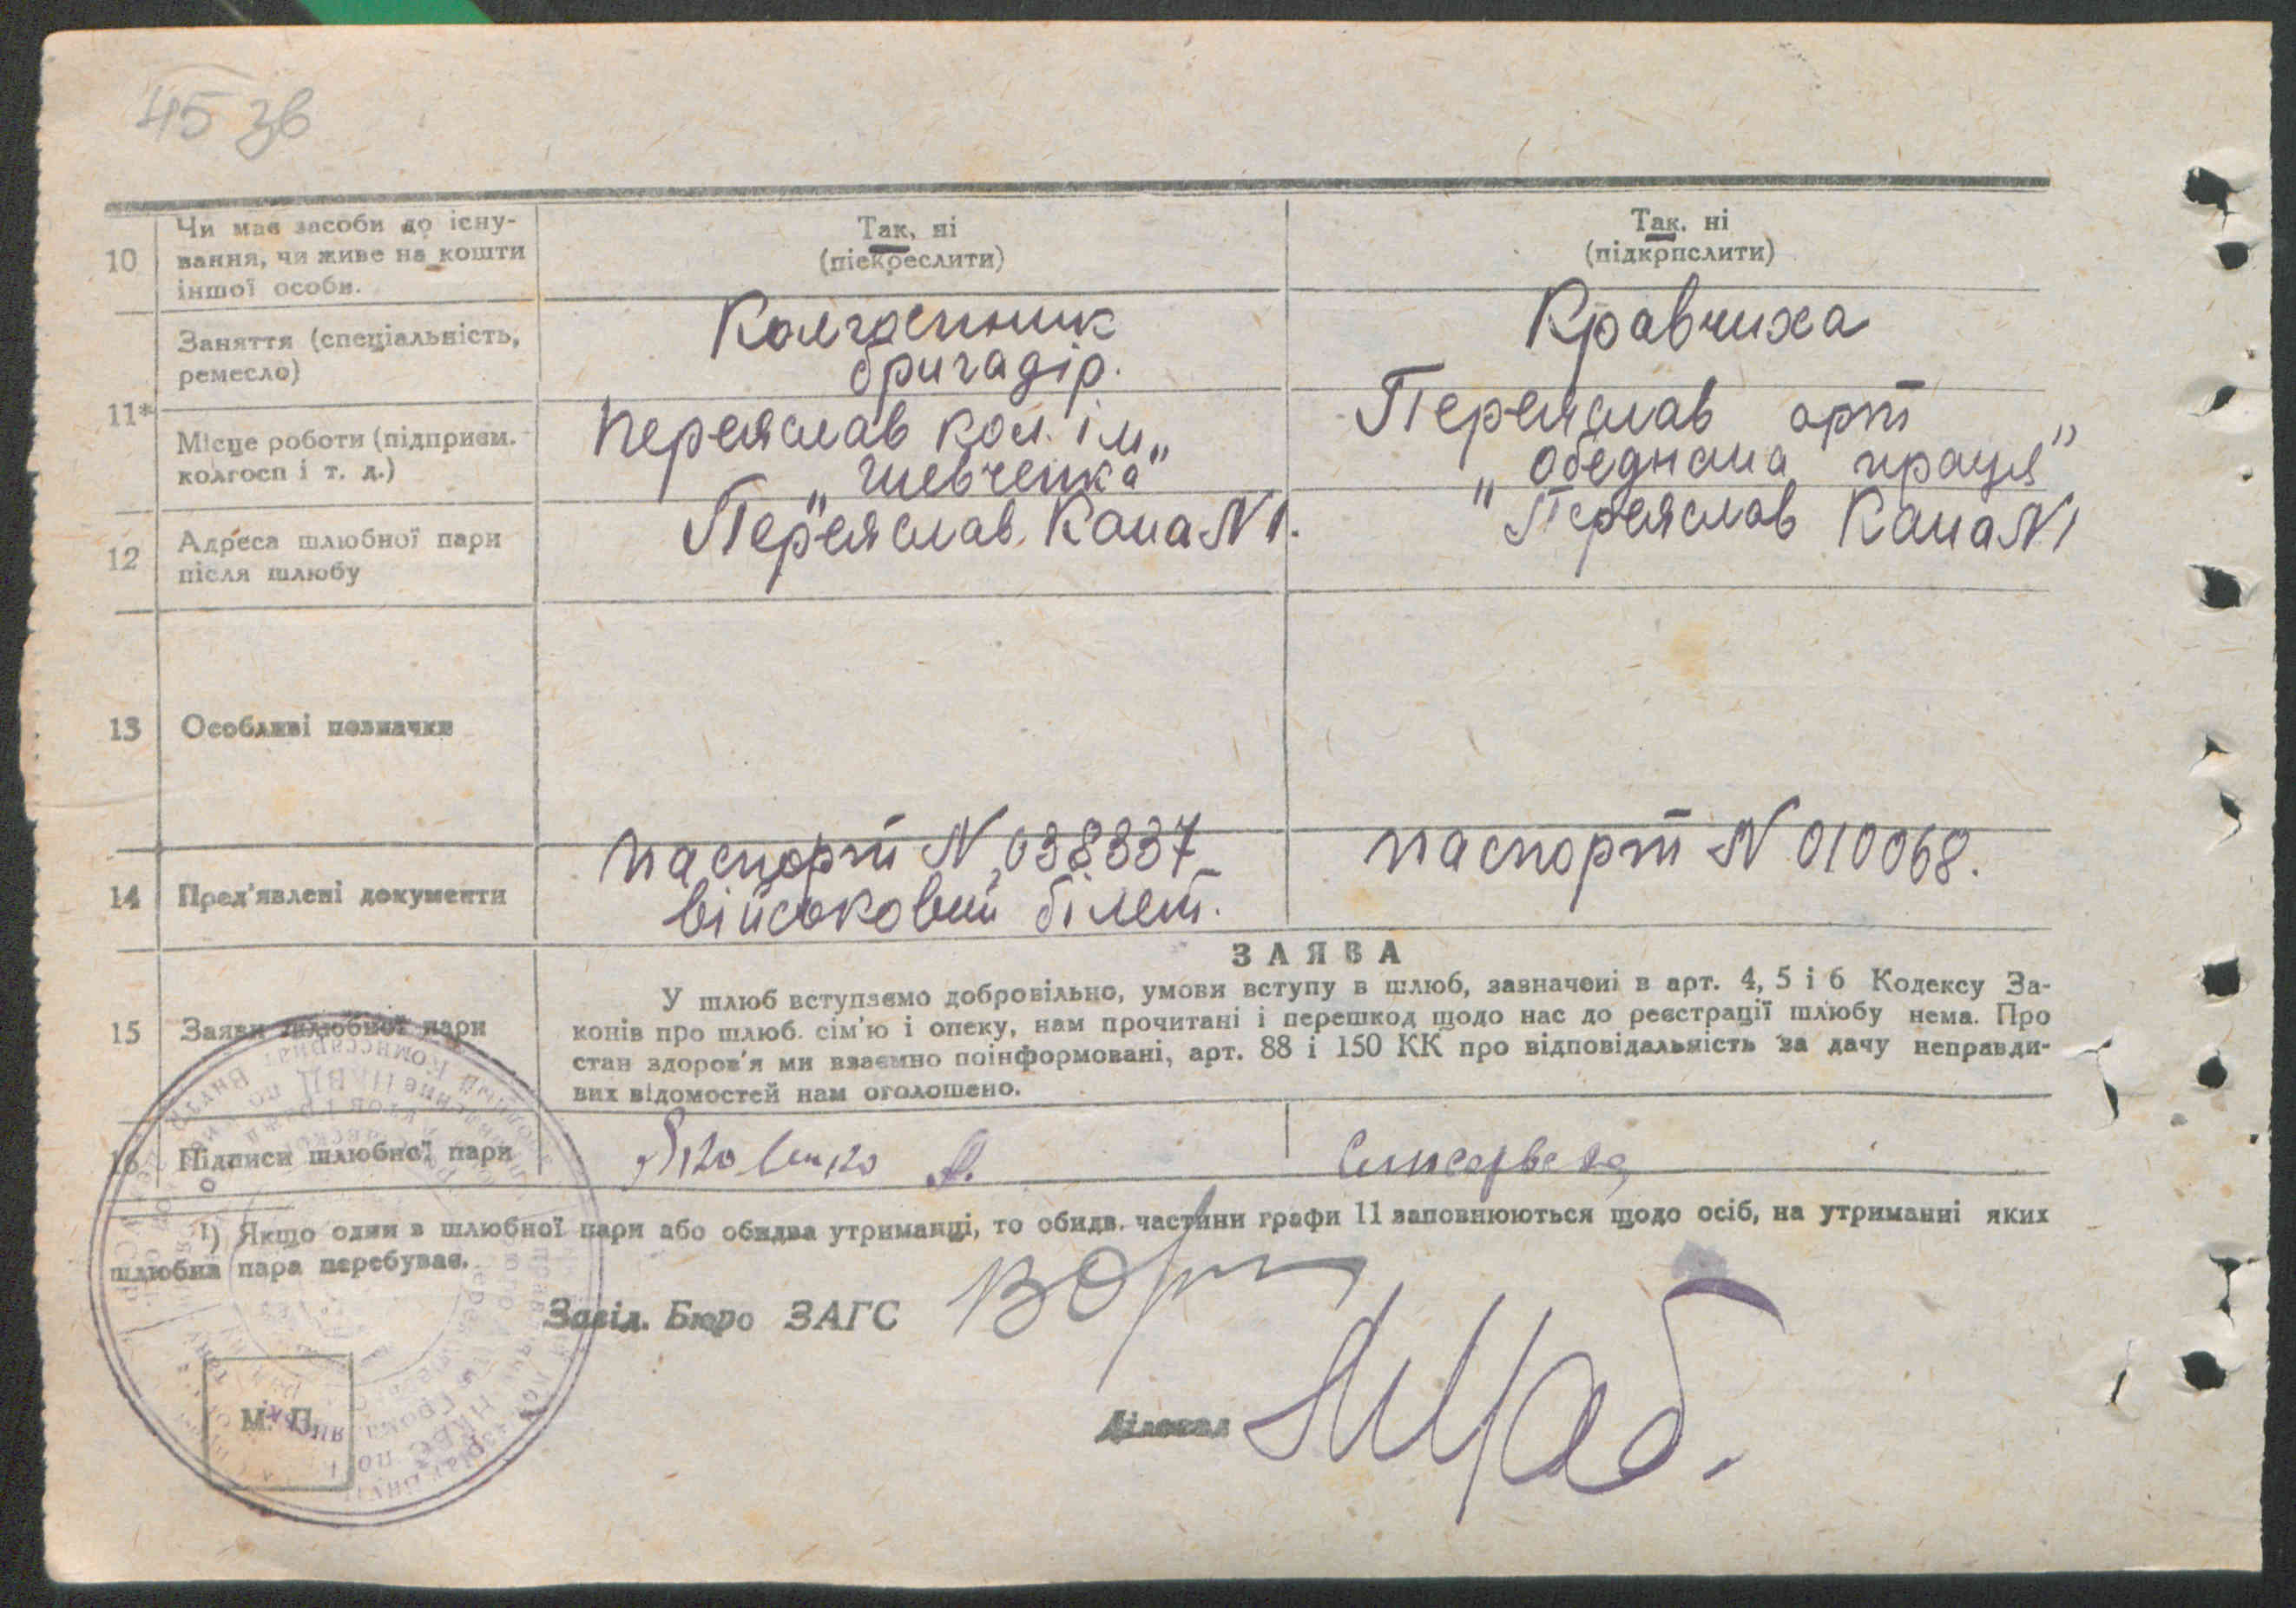 45 зв
10
Чи має засоби до існу-
вання, чи живе на кошти
іншої особи.
Так, ні
(піекреслити)
Так. ні
(підкрпслити)
11*
Заняття (спеціальність,
ремесло)
Колгоспник
бригадір.
Кравчиха
Місце роботи (підприєм.
колгосп і т. д.)
Переяслав кол. ім
„Шевченка"
Переяслав арт
„Обєднана праця"
12
Адреса шлюбної пари
після шлюбу
Переяслав. Кона N 1.
Переяслав Кона N 1
13 Особливі позначки
14 Пред'явлені документи
паспорт N 038337
військовий білет.
паспорт N 010068.
15 Заяви шлюбної пари
ЗАЯВА
У шлюб вступаємо добровільно, умови вступу в шлюб, зазначені в арт. 4, 5 і 6 Кодексу За-
конів про шлюб. сім'ю і опеку, нам прочитані і перешкод щодо нас до реєстрації шлюбу нема. Про
стан здоров'я ми взаємно поінформовані, арт. 88 і 150 КК про відповідальність за дачу неправди-
вих відомостей нам оголошено.
16 Підписи шлюбної пари
1) Якщо один в шлюбної пари або обидва утриманці, то обидв. частини графи 11 заповнюються щодо осіб, на утриманні яких
шлюбна пара перебуває.
Завід. Бюро ЗАГС
Діловод
М. П.